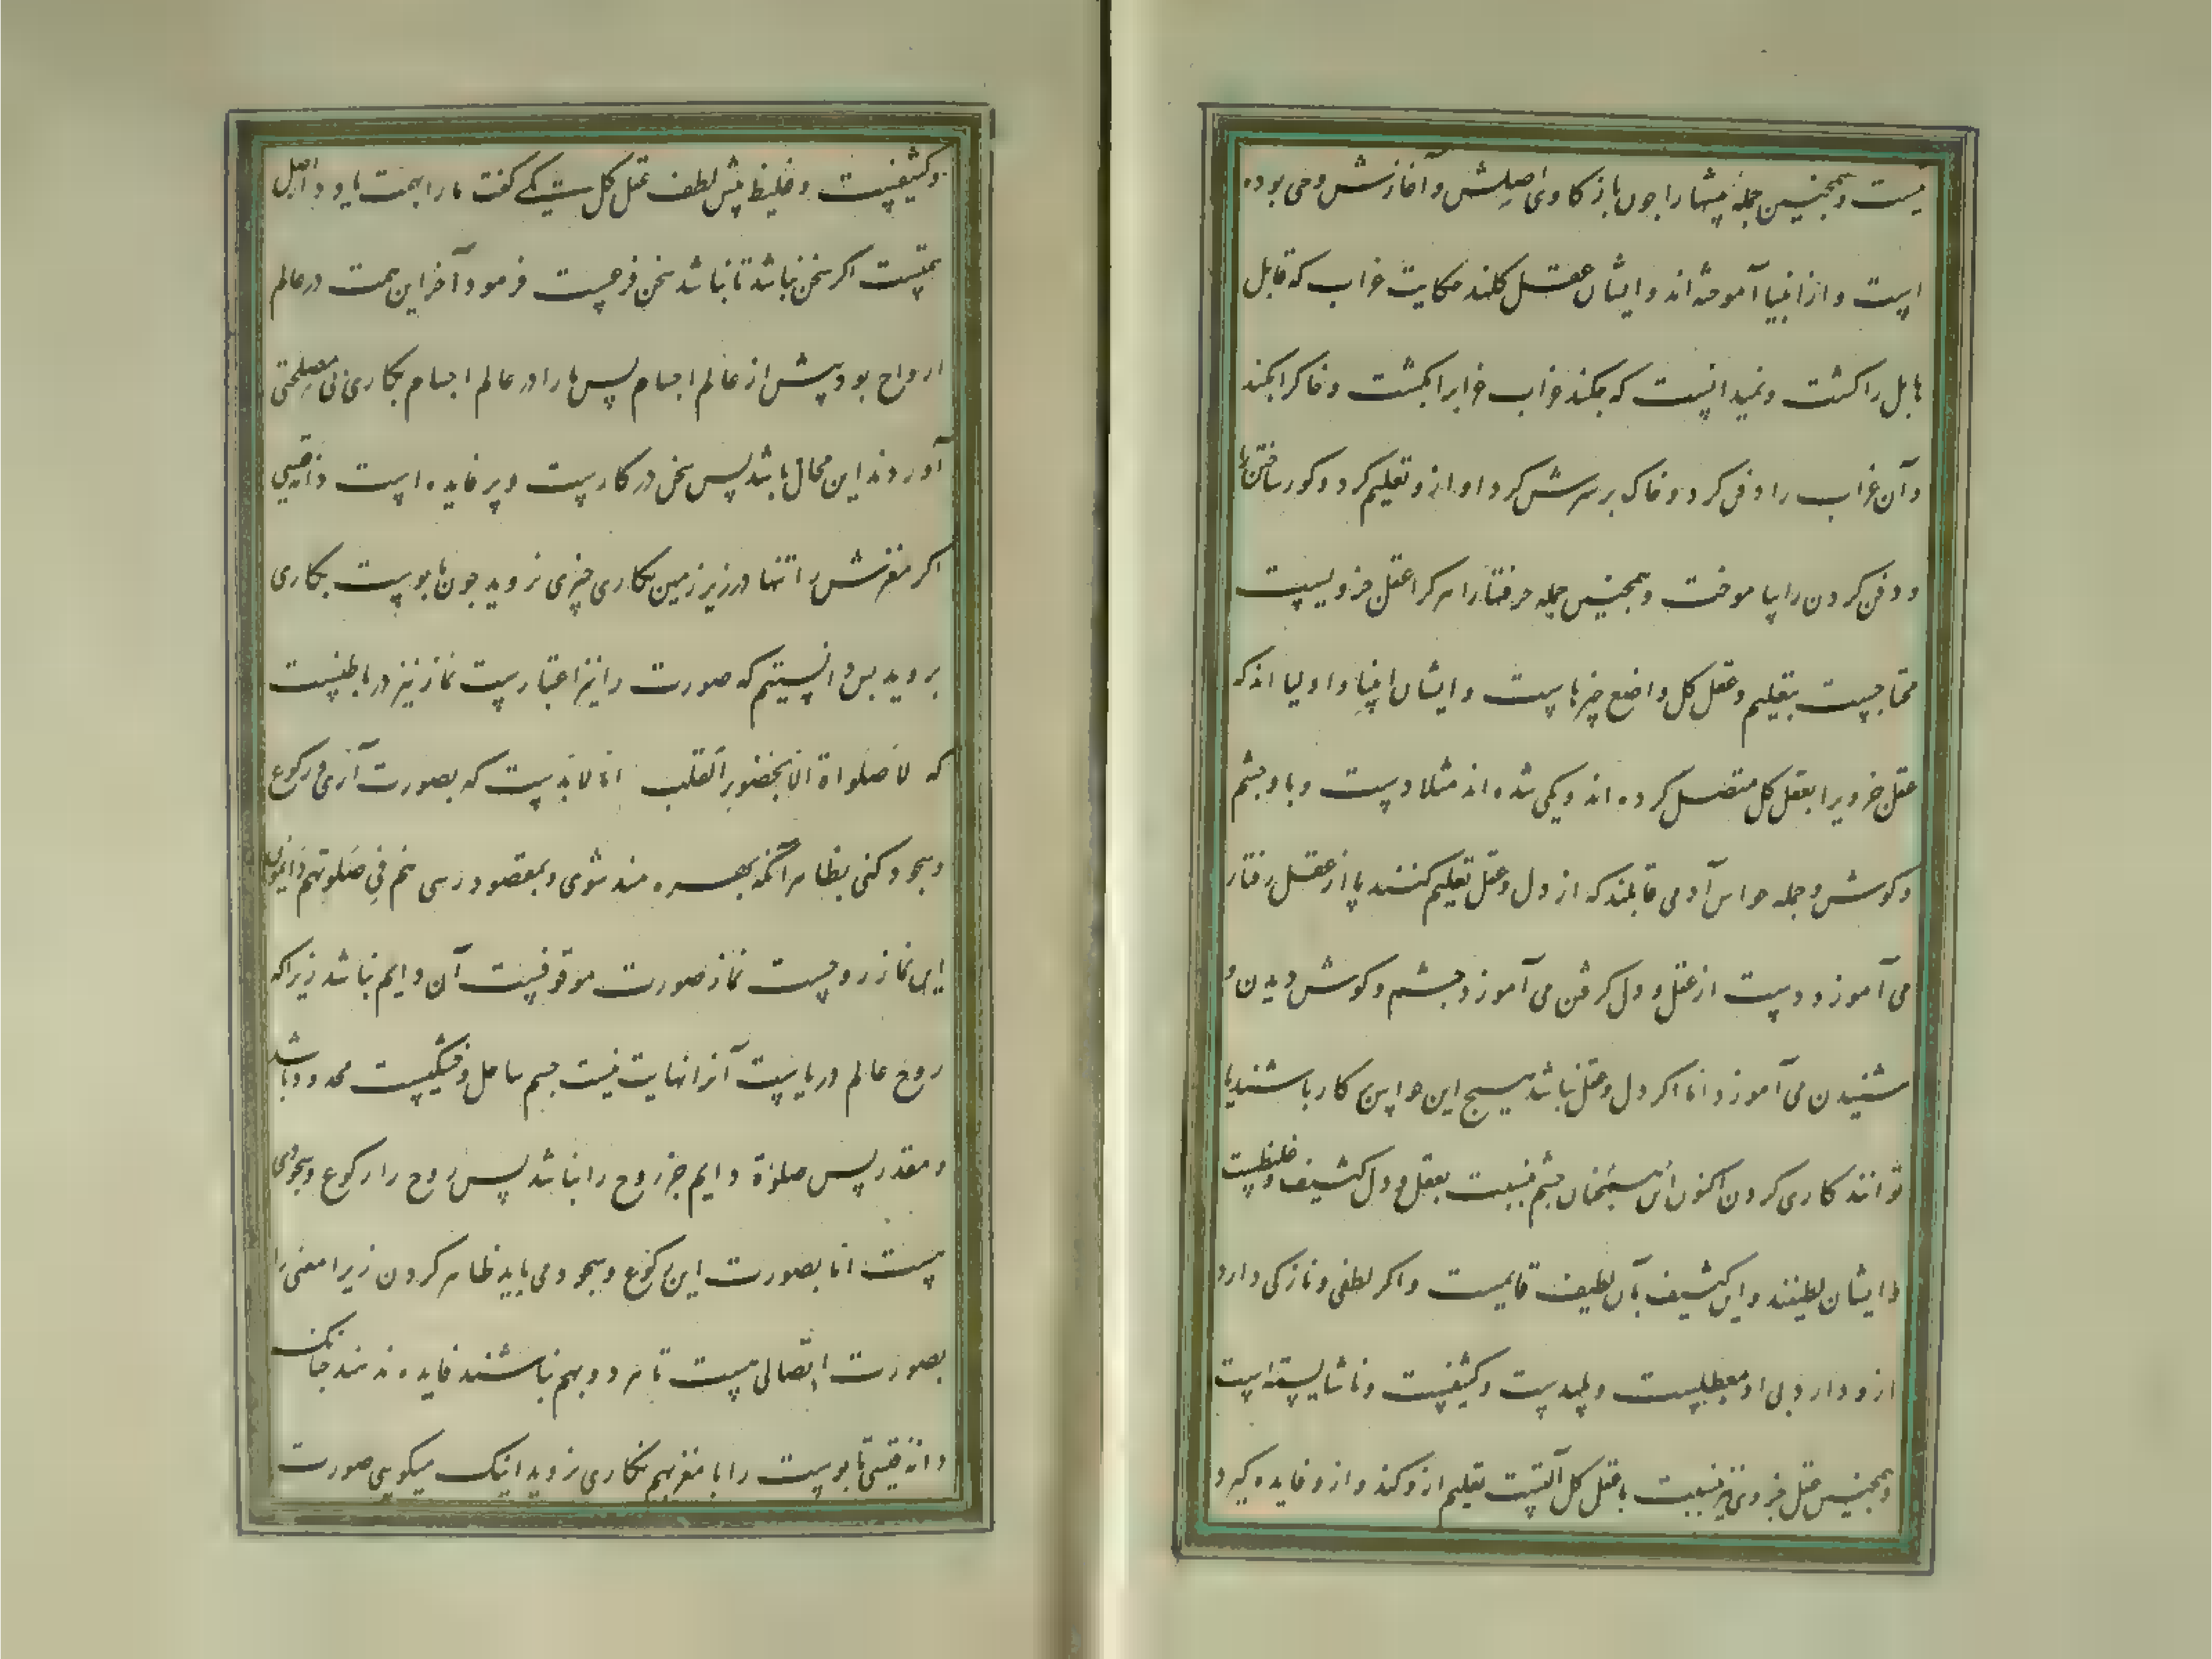 یست و همچنین جمله پیشها را چون باز کاوی اصلش و آغازش وحی بوده
است و از انبیا آموخته‌اند و ایشان عقل کلند حکایت غراب که قابل
هابل را کشت و نمیدانست که چکند غراب غرابرا بکشت و خاکرا بکند
و آن غراب را دفن کرد و خاک بر سرش کرد او ازو تعلیم کرد و کور ساختن را
و دفن کردن را بیاموخت و همچنین جمله حرفتها را هر کرا عقل جزویست
محتاجست بتعلیم و عقل کل واضع چیزهاست و ایشان انبیا و اولیا اند که
عقل جزویرا بعقل کل متصل کرده اند و یکی شده اند مثلا دست و پا و چشم
و کوش و جمله حواس آدمی قابلند که از دل و عقل تعلیم کنند پا از عقل رفتار
می آموزد دست از عقل و دل کرفتن می آموزد چشم و کوش دیدن و
شنیدن می آموزد اما اکر دل و عقل نباشد هیچ این حواس کار باشند یا
توانند کاری کردن اکنون همچنان جسم نسبت بعقل و دل کثیف و غلیظست
و ایشان لطیفند و این کثیف بآن لطیف قایمست و اکر لطفی و نازکی دارد
ازو دارد بی او معطلست و پلیدست و کثیفست و ناشایسته است
و همچنین عقل جزوی نیز نسبت با عقل کل آلتست تعلیم ازو کند و ازو فایده کیرد
و کثیفست و غلیظ پیش لطف عقل کلست یکی کفت ما را بهمت یاد دار اصل
همتست اکر سخن نباشد تا نباشد سخن فرعست فرمود آخر این همت در عالم
ارواح بود پیش از عالم اجسام پس ما را در عالم اجسام بکاری بی مصلحتی
آوردند این محال باشد پس سخن در کارست و پر فایده است دانه قیسی
اکر مغزش را تنها در زیر زمین بکاری چیزی نروید چون با پوست بکاری
بروید پس دانستیم که صورت را نیز اعتبارست نماز نیز در باطنست
که لا صلواة الا بحضور القلب اما لابدست که بصورت آری و رکوع
و سجود کنی بظاهر آنگه بهره مند شوی و بمقصود رسی هم في صلوتهم دائمون
این نماز روحست نماز صورت موقوفست آن دایم نباشد زیرا که
روح عالم دریاست آنرا نهایت نیست جسم ساحل و خشکیست محدود باشد
و مقدر پس صلوة دایم جز روح را نباشد پس روح را رکوع و سجودی
هست اما بصورت این رکوع و سجود می باید ظاهر کردن زیرا معنی را
بصورت اتصالی هست تا هر دو بهم نباشند فایده ندهند چنانک
دانه قیسی تا پوست را با مغز بهم نکاری نروید اینک میکویی صورت